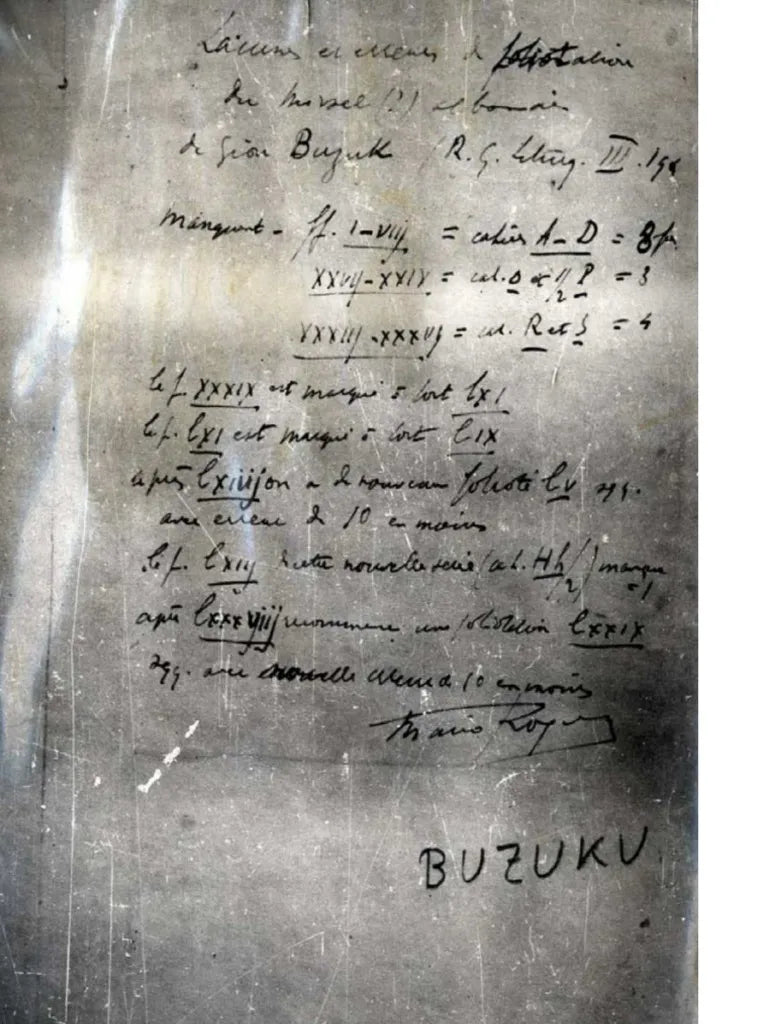 Lacunes et erreurs de foliotation
du missel (?) albanais
de Gion Buzuk (R. G. Liturg. III. 194
Manquent - ff. I-VIIJ = cahiers A-D = 8 ff.
XXVIJ-XXIX = cah. O et 1/2 P = 3
XXXIIJ-XXXVJ = cah. R et S = 4
le f. XXXIX est marqué à tort LXI
le f. LXI est marqué à tort LIX
après LXIIIJ on a de nouveau folioté LV sqq.
avec erreur de 10 en moins
le f. LXIIJ de cette nouvelle série (cah. Hh/2) manque = 1
après LXXXVIIJ recommence une foliotation LXXIX
sqq. avec nouvelle erreur de 10 en moins
Mario
BUZUKU